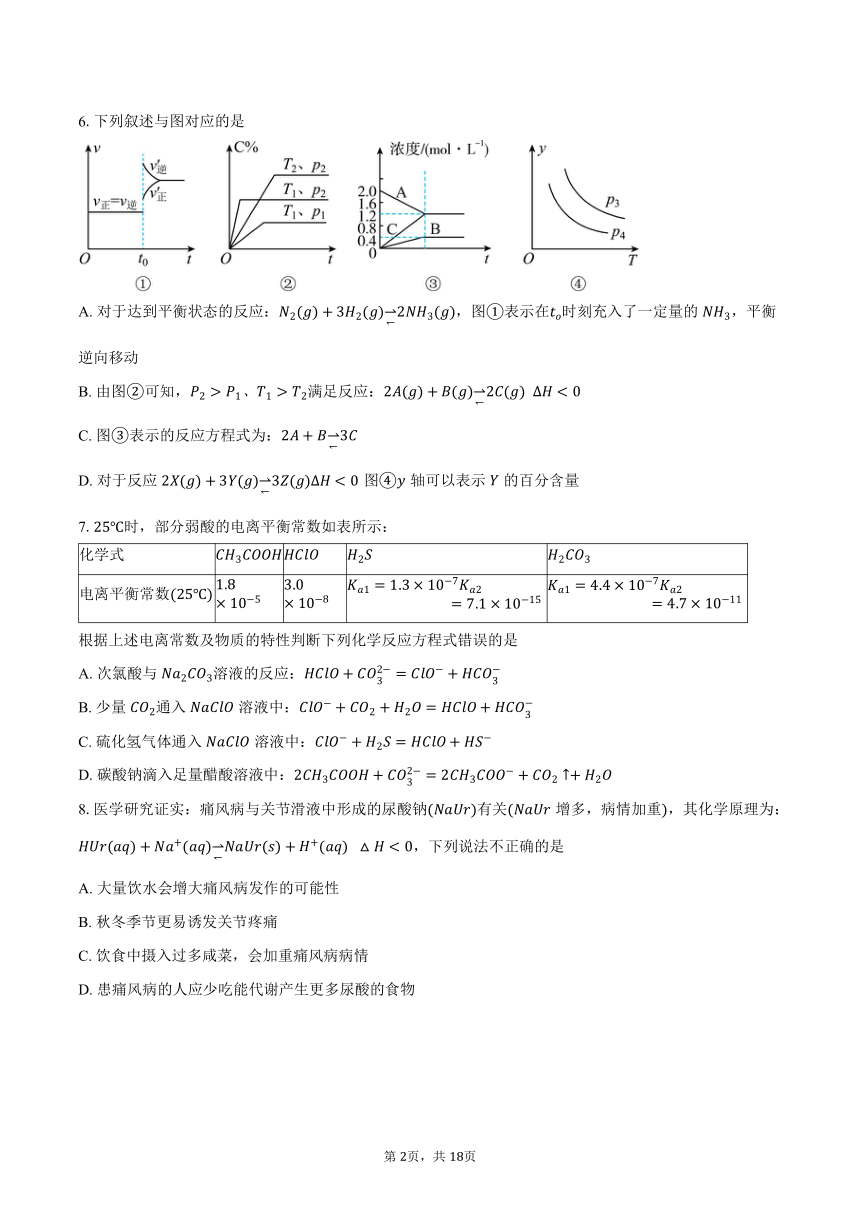 6. 下列叙述与图对应的是
v v′逆 v正=v逆 v′正 O t₀ t ①
C% T₂、p₂ T₁、p₂ T₁、p₁ O t ②
浓度/(mol·L⁻¹) 2.0 1.6 1.2 0.8 0.4 0 A C B t ③
y p₃ p₄ O T ④
A. 对于达到平衡状态的反应：N₂(g) + 3H₂(g)⇌2NH₃(g)，图①表示在tₒ时刻充入了一定量的 NH₃，平衡
逆向移动
B. 由图②可知，P₂ > P₁、T₁ > T₂满足反应：2A(g) + B(g)⇌2C(g) ΔH < 0
C. 图③表示的反应方程式为：2A + B⇌3C
D. 对于反应 2X(g) + 3Y(g)⇌3Z(g)ΔH < 0 图④y 轴可以表示 Y 的百分含量
7. 25℃时，部分弱酸的电离平衡常数如表所示：
化学式 CH₃COOH HClO H₂S H₂CO₃
电离平衡常数(25℃) 1.8 × 10⁻⁵ 3.0 × 10⁻⁸ Kₐ₁ = 1.3 × 10⁻⁷Kₐ₂ = 7.1 × 10⁻¹⁵ Kₐ₁ = 4.4 × 10⁻⁷Kₐ₂ = 4.7 × 10⁻¹¹
根据上述电离常数及物质的特性判断下列化学反应方程式错误的是
A. 次氯酸与 Na₂CO₃溶液的反应：HClO + CO₃²⁻ = ClO⁻ + HCO₃⁻
B. 少量 CO₂通入 NaClO 溶液中：ClO⁻ + CO₂ + H₂O = HClO + HCO₃⁻
C. 硫化氢气体通入 NaClO 溶液中：ClO⁻ + H₂S = HClO + HS⁻
D. 碳酸钠滴入足量醋酸溶液中：2CH₃COOH + CO₃²⁻ = 2CH₃COO⁻ + CO₂ ↑+ H₂O
8. 医学研究证实：痛风病与关节滑液中形成的尿酸钠(NaUr)有关(NaUr 增多，病情加重)，其化学原理为：
HUr(aq) + Na⁺(aq)⇌NaUr(s) + H⁺(aq) △ H < 0，下列说法不正确的是
A. 大量饮水会增大痛风病发作的可能性
B. 秋冬季节更易诱发关节疼痛
C. 饮食中摄入过多咸菜，会加重痛风病病情
D. 患痛风病的人应少吃能代谢产生更多尿酸的食物
第 2页，共 18页